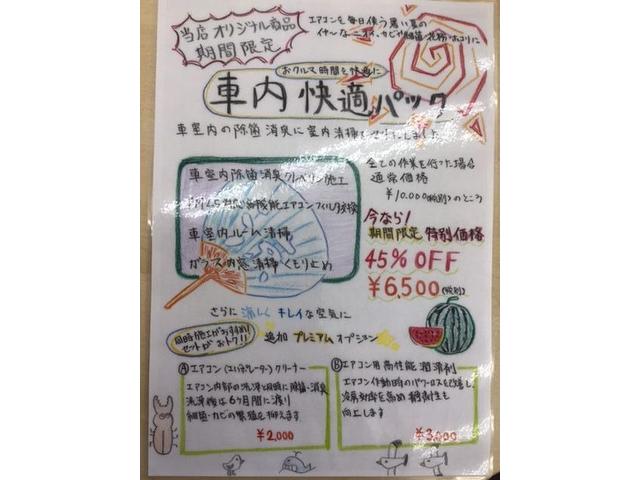 当店オリジナル商品
期間限定
エアコンを毎日使う暑い夏の
イヤ〜なニオイ、カビや細菌・花粉・ホコリに
おクルマ時間を快適に
車内快適パック
車室内の除菌消臭に室内清掃をセットにしました
車室内除菌消臭クレベリン施工
PM2.5対応高性能エアコンフィルター交換
車室内ルーム清掃
ガラス内窓清掃くもり止め
全ての作業を行った場合
通常価格
¥10.000(税別)のところ
今なら!
期間限定 特別価格
45%OFF
¥6,500(税別)
さらに 涼しく キレイな空気に
同時施工がおすすめ!
セットがおトク!!
追加 プレミアムオプション
Ⓐエアコン(エバポレーター)クリーナー
エアコン内部の洗浄と同時に除菌・消臭
洗浄後は6ヶ月間に渡り
細菌・カビの繁殖を抑えます
¥2,000
Ⓑエアコン用高性能潤滑剤
エアコン作動時のパワーロスを改善し
冷房効率を高め静粛性も
向上します
¥3,000